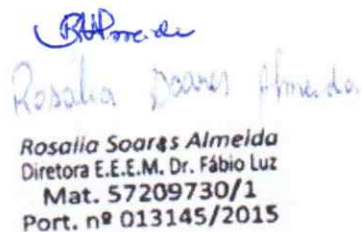 Rosalia Soares Almeida
Rosalia Soares Almeida
Diretora E.E.E.M. Dr. Fábio Luz
Mat. 57209730/1
Port. nº 013145/2015